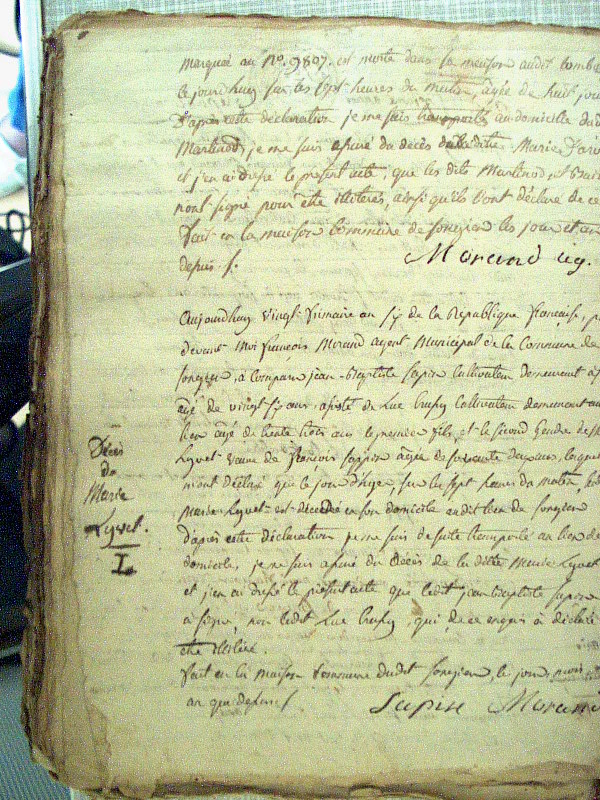 marquée au No. 9807. est morte dans la maison audit
ce jourdhuy sur les sept heures du matin, agée de huit jou
D'après cette déclaration je me suis transporté au domicile du
Martinod, je me suis assuré du décès de ladite Marie
et j'en ai dressé le présent acte, que les dits Martinod et
n'ont signé pour être illitérés, ainsi qu'ils l'ont déclaré de ce
Fait en la maison Commune de songieu les jour et an
depuis f.
Morand ag.
Aujourdhuy vingt frimaire an six de la République française, p
devant moi françois Morand agent Municipal de la Commune de
songieu, a Comparu jean-Baptiste sapin Cultivateur demeurant
agé de vingt six ans, assisté de Luc Cultivateur demeurant au
lieu agé de trente trois ans le premier fils, et le second Gendre de
Lyvet veuve de françois sappin agée de soixante ans, lesquels
m'ont déclaré que le jour d'hyer, sur les sept heures du matin,
Marie Lyvet est décédée en son domicile audit lieu de songieu
d'après cette déclaration je me suis de suite transporté au lieu de
domicile, je me suis assuré du Décès de la ditte Marie Lyvet
et j'en ai dressé le présent acte que ledit jean Baptiste sapin
a signé, non ledit Luc, qui de ce enquis a déclaré
être illitéré.
Fait en la maison Commune dudit songieu, le jour, mois
an que dessus f
Sapin Morand
Décès
de
Marie
Lyvet.
I